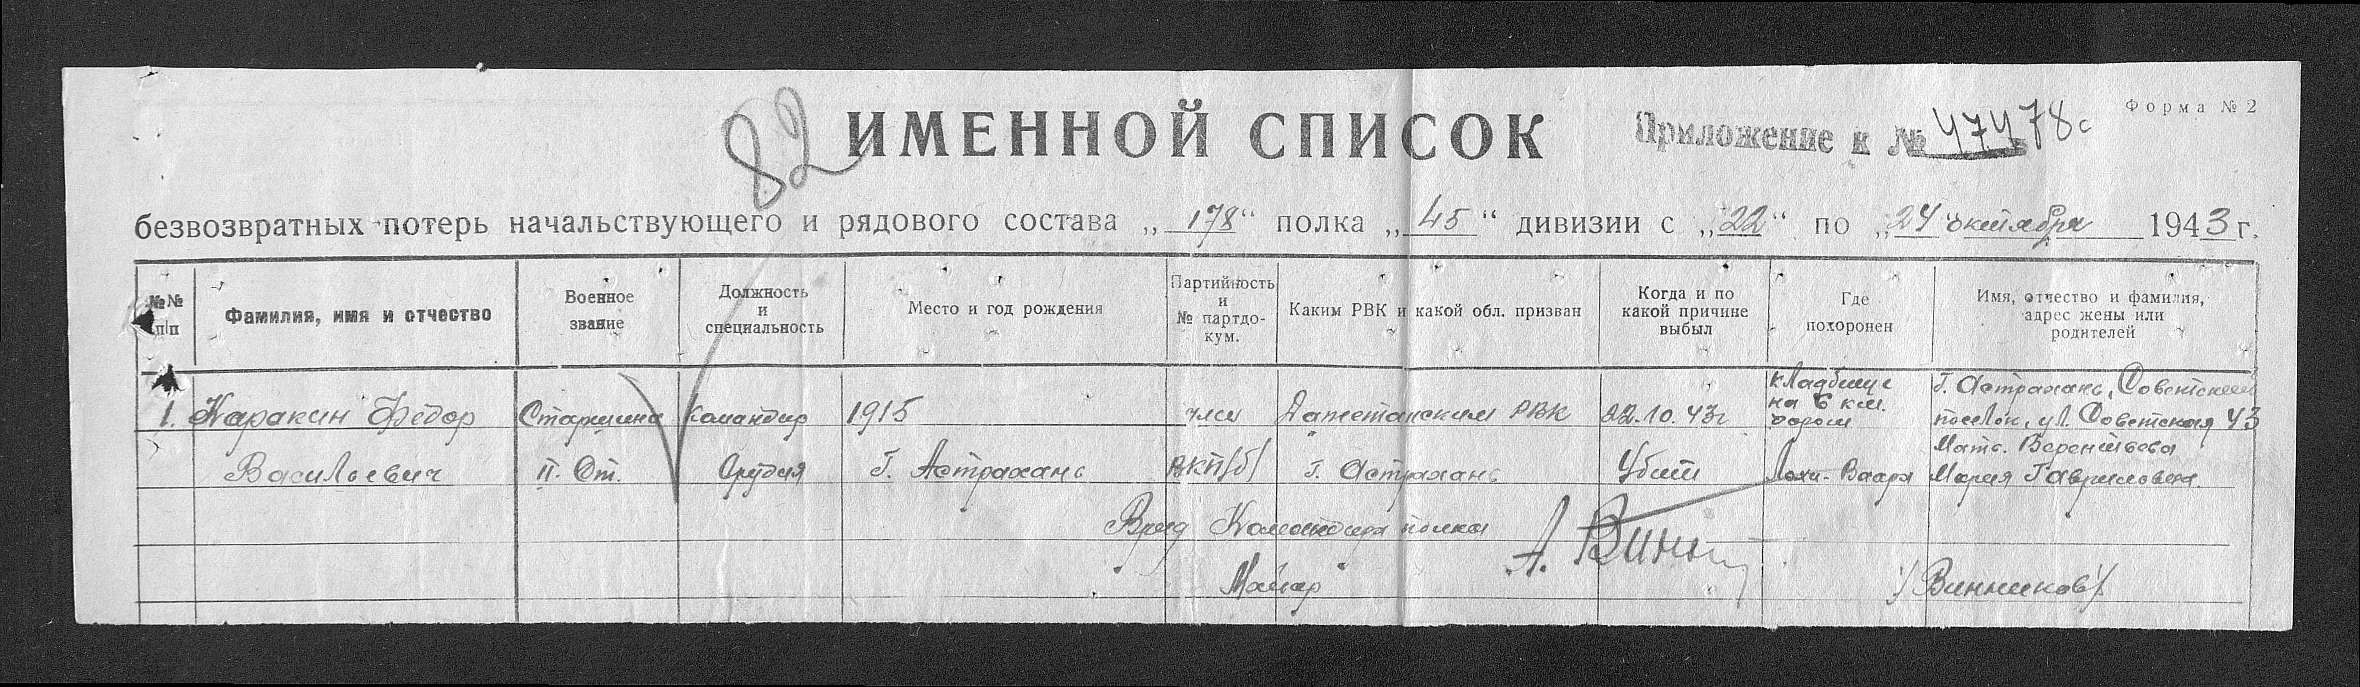 Форма № 2
82
ИМЕННОЙ СПИСОК
Приложение к № 47478с
безвозвратных потерь начальствующего и рядового состава „178“ полка „45“ дивизии с „22“ по „24“ октября 1943 г.
№№ п|п
Фамилия, имя и отчество
Военное звание
Должность и специальность
Место и год рождения
Партийность и № партдо- кум.
Каким РВК и какой обл. призван
Когда и по какой причине выбыл
Где похоронен
Имя, отчество и фамилия, адрес жены или родителей
1. Каракин Фёдор Старшина командир 1915 член РВК 22.10.43г кладбище на 6 км. дороги г. Астрахань, Советский поселок, ул. Советская 43
Васильевич Орудия г. Астрахань ВКП/б/ г. Астрахань Убит Лохи-Ваара Мать. Мария Гавриловна
Врид Командира полка
Майор /Винников/